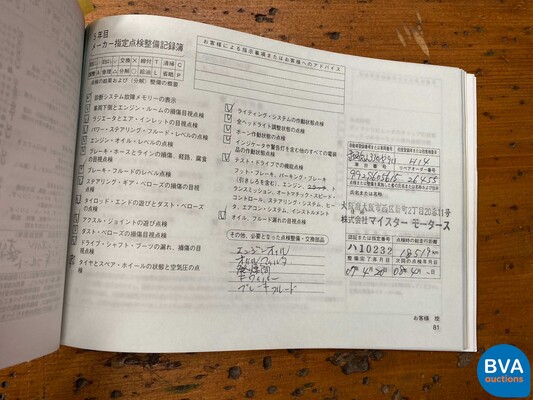 5年目
メーカー指定点検整備記録簿
お客様による指示事項またはお客様へのアドバイス
交換 × 締付 T 清掃 C
調整 A 修理 △ 分解 ○ 給油 L 省略 P
点検の結果および(分解)整備の概要
診断システム故障メモリーの表示
車両下側とエンジン・ルームの損傷目視点検
ラジエータとエア・インレットの目視点検
パワー・ステアリング・フルード・レベルの点検
エンジン・オイル・レベルの点検
ブレーキ・ホースとラインの損傷、経路、腐食
の目視点検
ブレーキ・フルードのレベル点検
ステアリング・ギア・ベローズの損傷の目視
点検
タイロッド・エンドの遊びとダスト・ベローズ
の点検
アクスル・ジョイントの遊び点検
ダスト・ベローズの損傷目視点検
ドライブ・シャフト・ブーツの漏れ、損傷の目
視点検
タイヤとスペア・ホイールの状態と空気圧の点
検
ライティング・システムの作動状態点検
全ヘッドライト調整状態の点検
ホーン作動状態の点検
インジケータや警告灯を含む他のすべての電装
品の作動状態点検
テスト・ドライブでの機能点検
フット・ブレーキ、パーキング・ブレーキ
(引きしろを含む)、エンジン、
トランスミッション、オートマチック・スピード・
コントロール、ステアリング・システム、ヒー
タ、エアコン・システム、インストルメント
オイル、フルード漏れの目視点検
その他、必要となった点検整備・交換部品
エンジンオイル
オイルフィルタ
ブレーキフルード
H14
大阪市大阪市西区新町2丁目20番11号
株式会社 マイスター モータース
認証または指定番号
点検時の総走行距離
ハ10232
整備完了年月日
次回の点検年月日
お客様 控
81
BVA
auctions